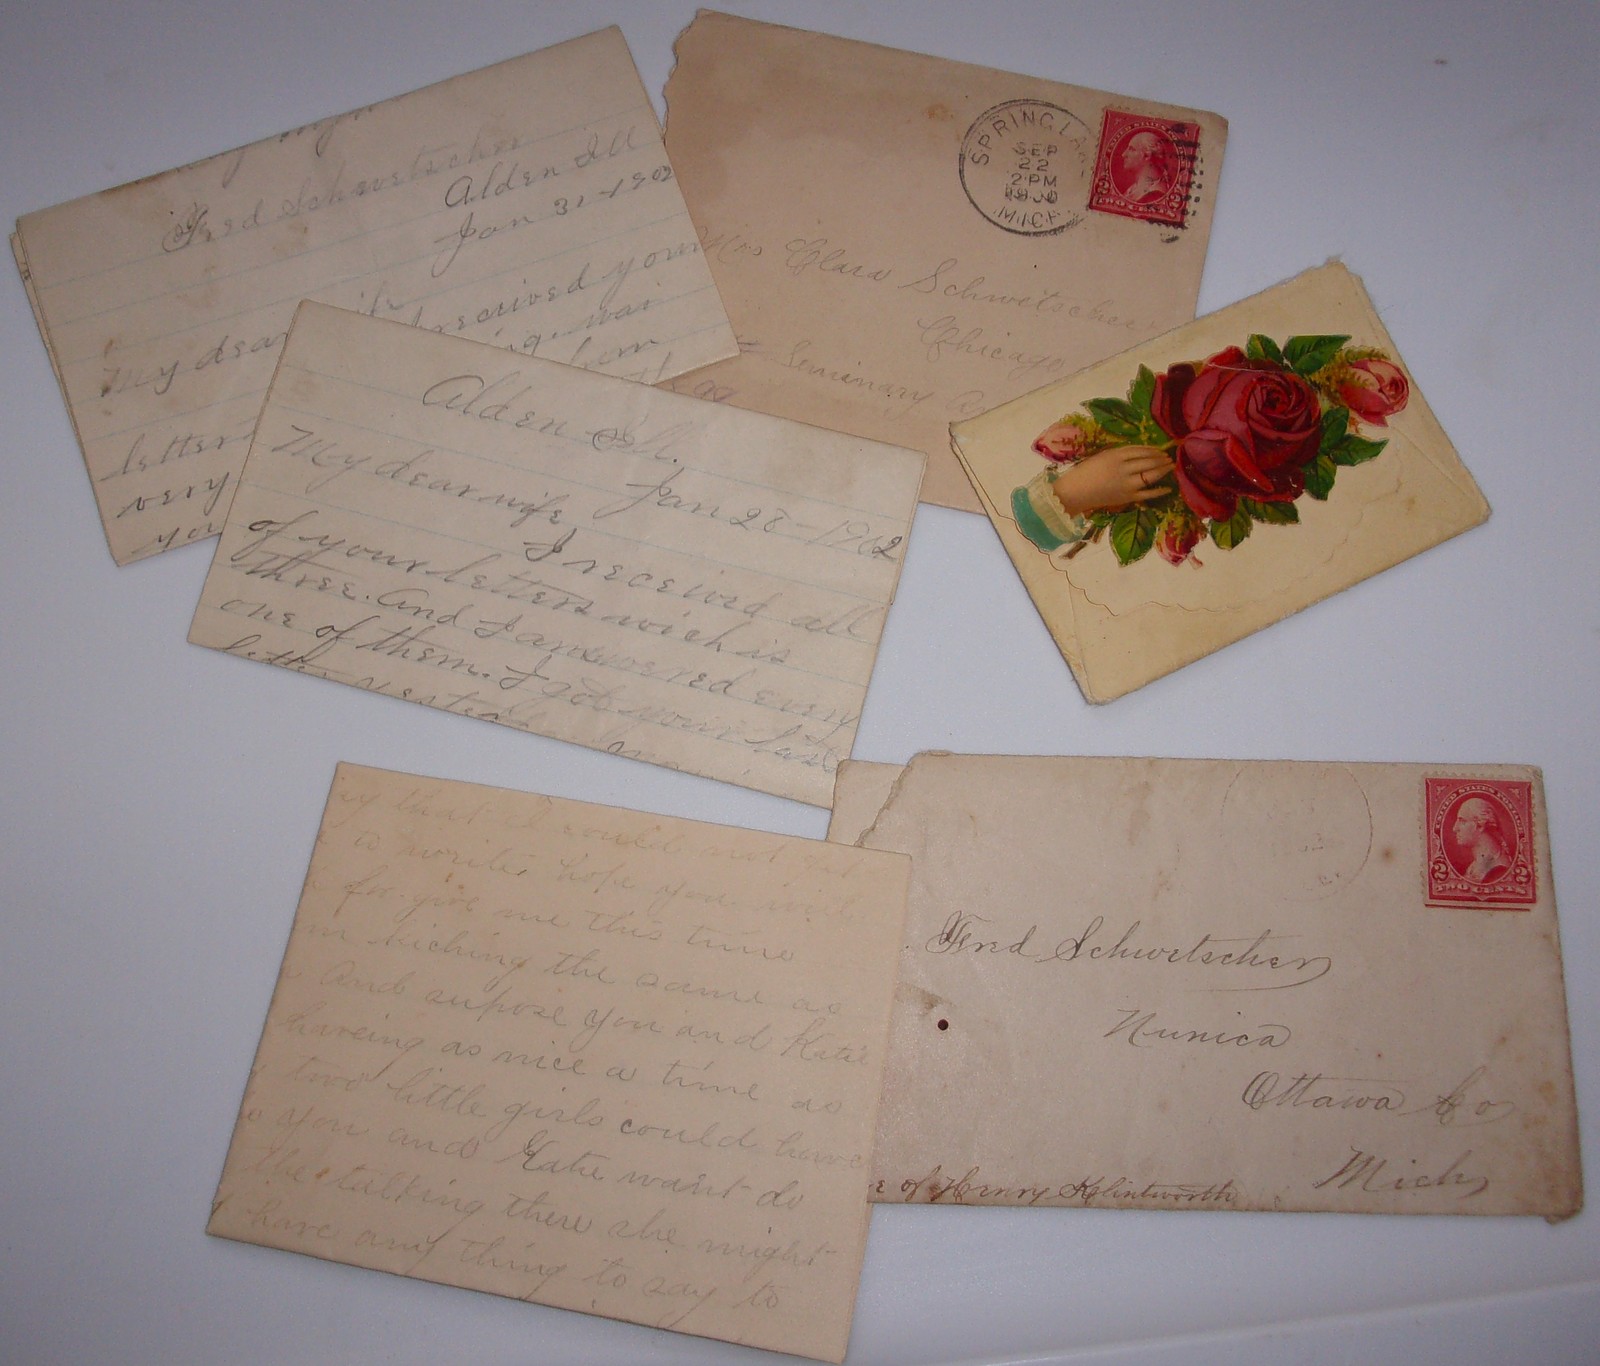 Fred Schwetscher
Alden Ill
Jan 31-1902
My dear
received your
letter
very
you
SPRING LAK
SEP
22
2 PM
MICH
UNITED STATES POSTAGE
2 2
TWO CENTS
Mrs Clara Schwetscher
Chicago
Seminary
Alden Ill.
Jan 28-1902
My dear wife
I received all
of your letters wich is
three. And I answered every
one of them. I got your last
letter yesterday
y that I could not get
to write, hope you will
for give me this time
kiching the same as
And supose you and Katie
haveing as nice a time as
two little girls could have
you and Katie want do
the talking there she might
have any thing to say to
UNITED STATES POSTAGE
2 2
TWO CENTS
Fred Schwetscher
Nunica
Ottawa Co
Mich,
e of Henry Klintworth